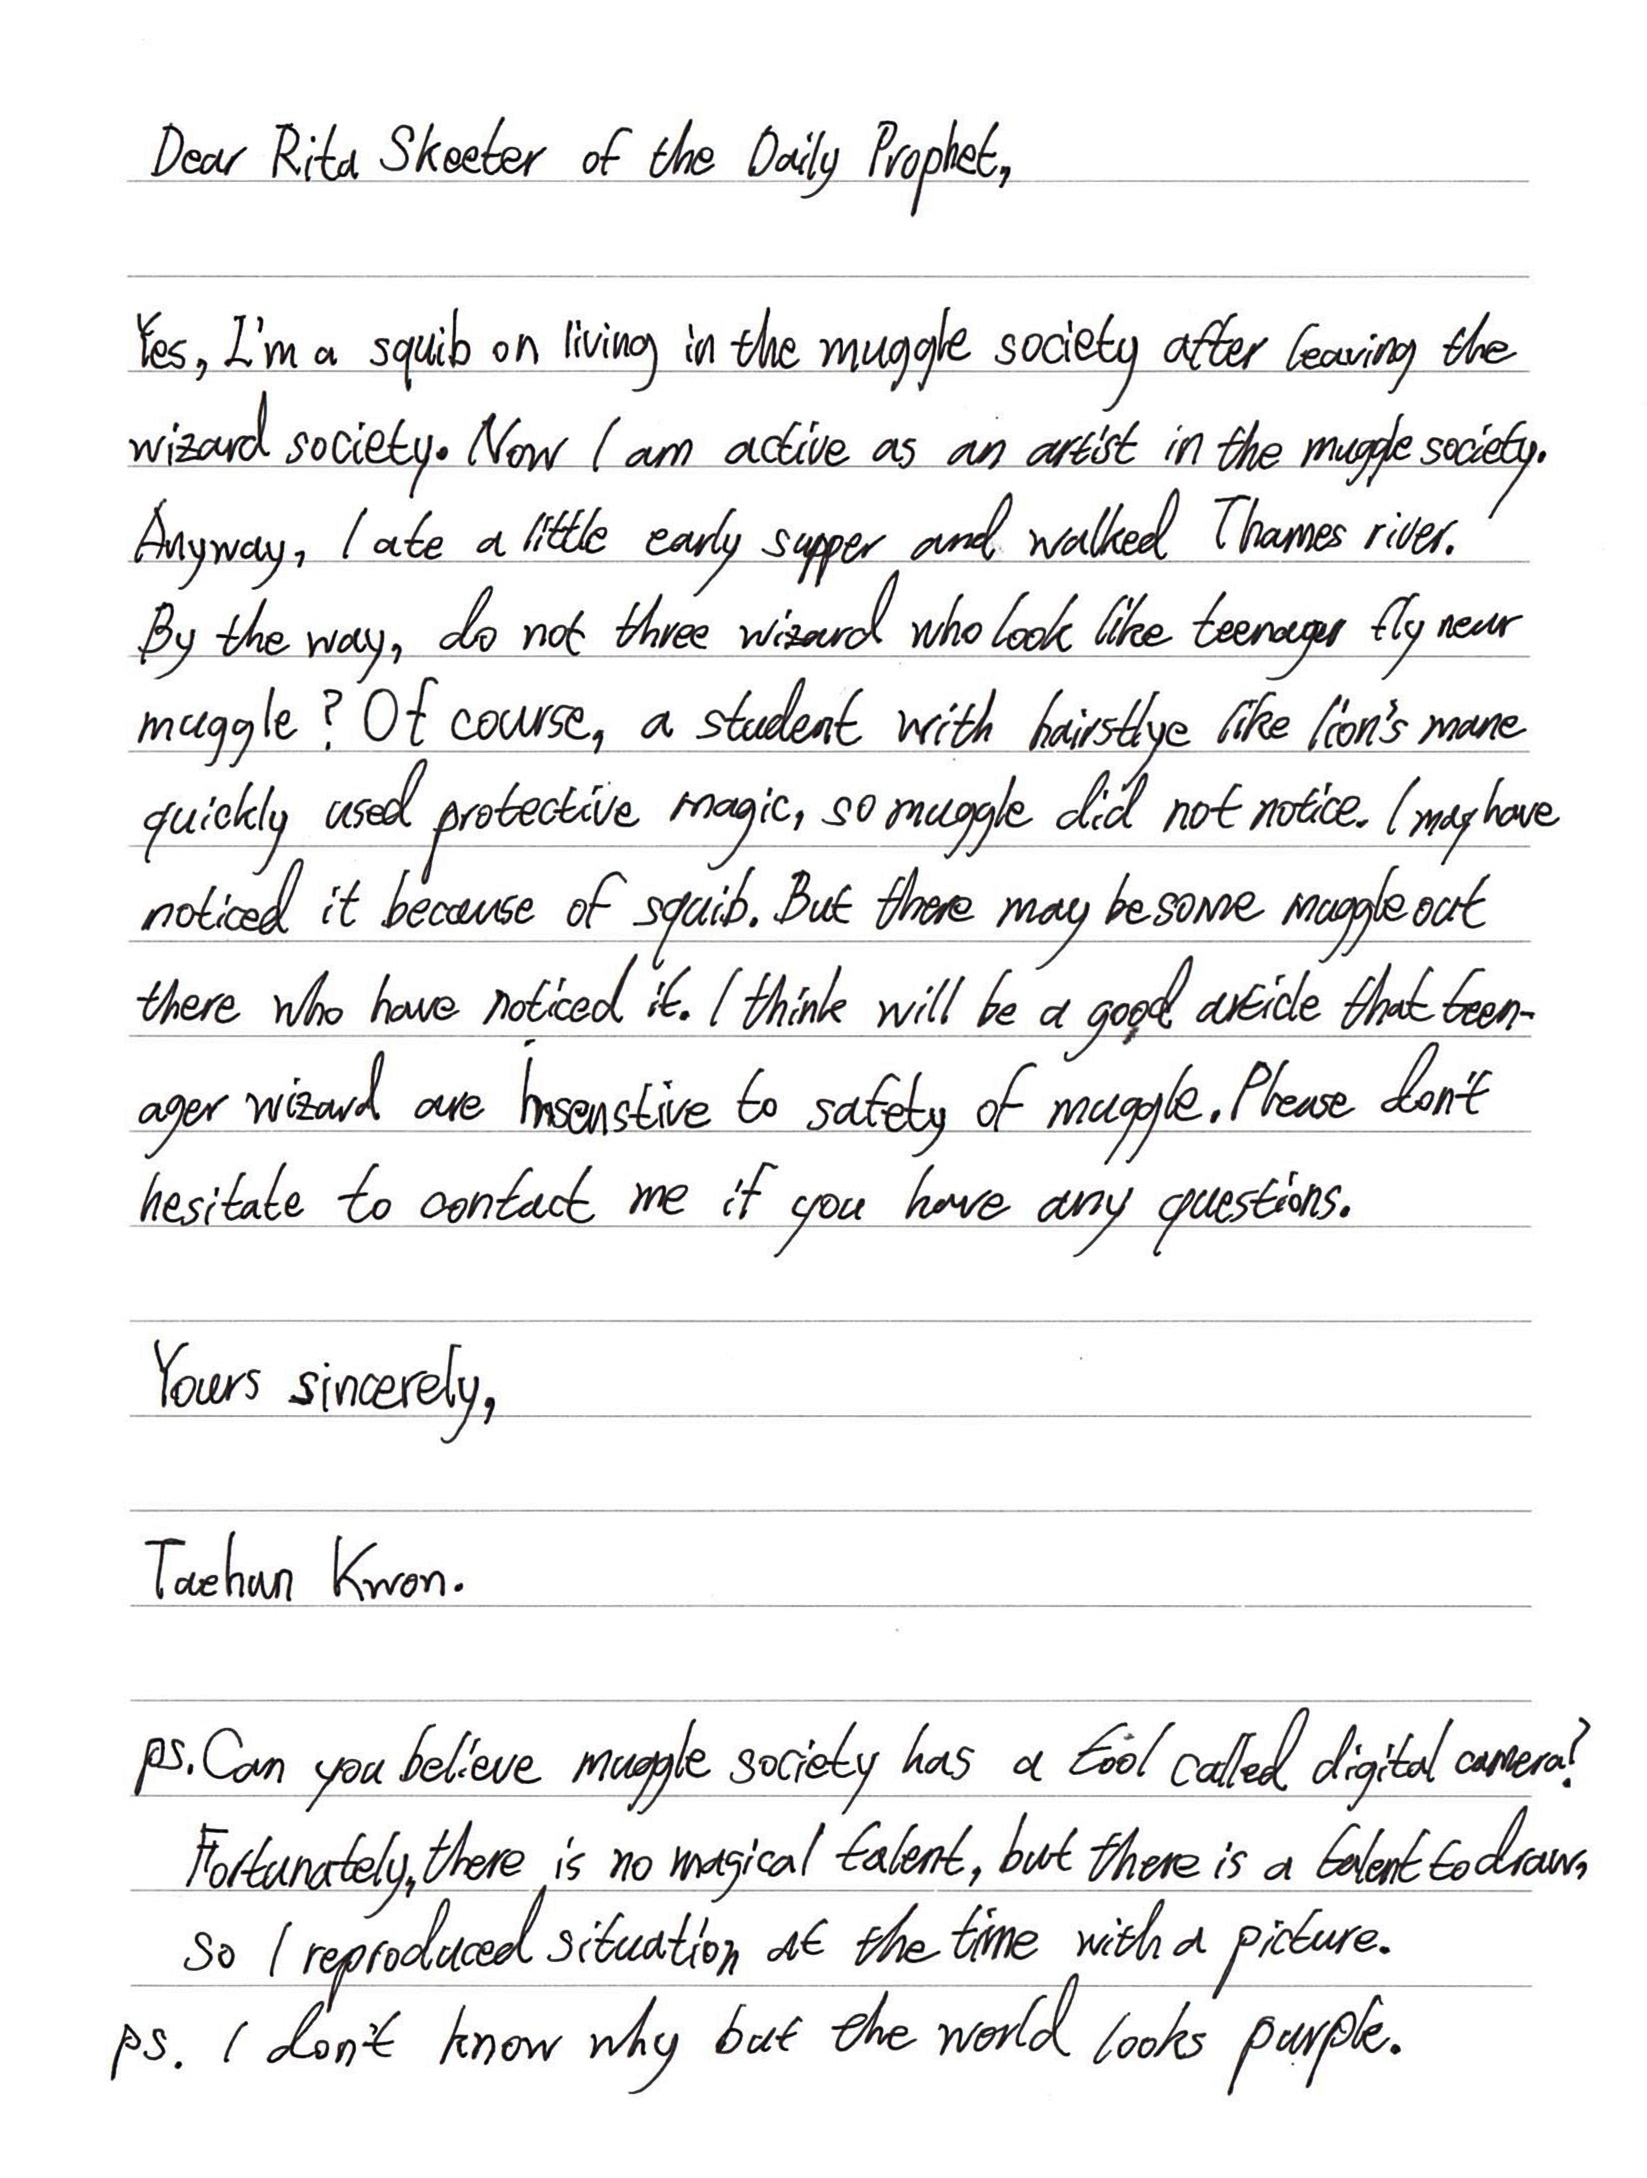 Dear Rita Skeeter of the Daily Prophet,
Yes, I'm a squib on living in the muggle society after leaving the
wizard society. Now I am active as an artist in the muggle society.
Anyway, I ate a little early supper and walked Thames river.
By the way, do not three wizard who look like teenager fly near
muggle? Of course, a student with hairstlye like lion's mane
quickly used protective magic, so muggle did not notice. I may have
noticed it because of squib. But there may be some muggle out
there who have noticed it. I think will be a good article that teen-
ager wizard are insenstive to safety of muggle. Please don't
hesitate to contact me if you have any questions.
Yours sincerely,
Taehun Kwon.
ps. Can you believe muggle society has a tool called digital camera?
Fortunately, there is no magical talent, but there is a talent to draw,
so I reproduced situation at the time with a picture.
ps. I don't know why but the world looks purple.